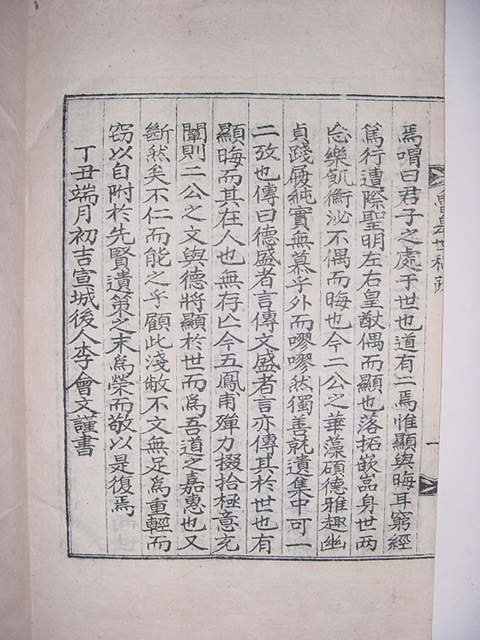 世稿
焉喟曰君子之處于世也道有二焉惟顯與晦耳窮經
篤行遭際聖明左右皇猷偶而顯也落拓嵌嵓身世兩
忘樂飢衡泌不偶而晦也今二公之華藻碩德雅趣幽
貞踐履純實無慕乎外而嘐嘐然獨善就遺集中可一
二攷也傳曰德盛者言傳文盛者言亦傳其於世也有
顯晦而其在人也無存亡今五鳳甫殫力掇拾極意充
闡則二公之文與德將顯於世而爲吾道之嘉惠也又
斷然矣不仁而能之乎顧此淺敝不文無足爲重輕而
竊以自附於先賢遺策之末爲榮而敬以是復焉
丁丑端月初吉宣城後人李會文謹書